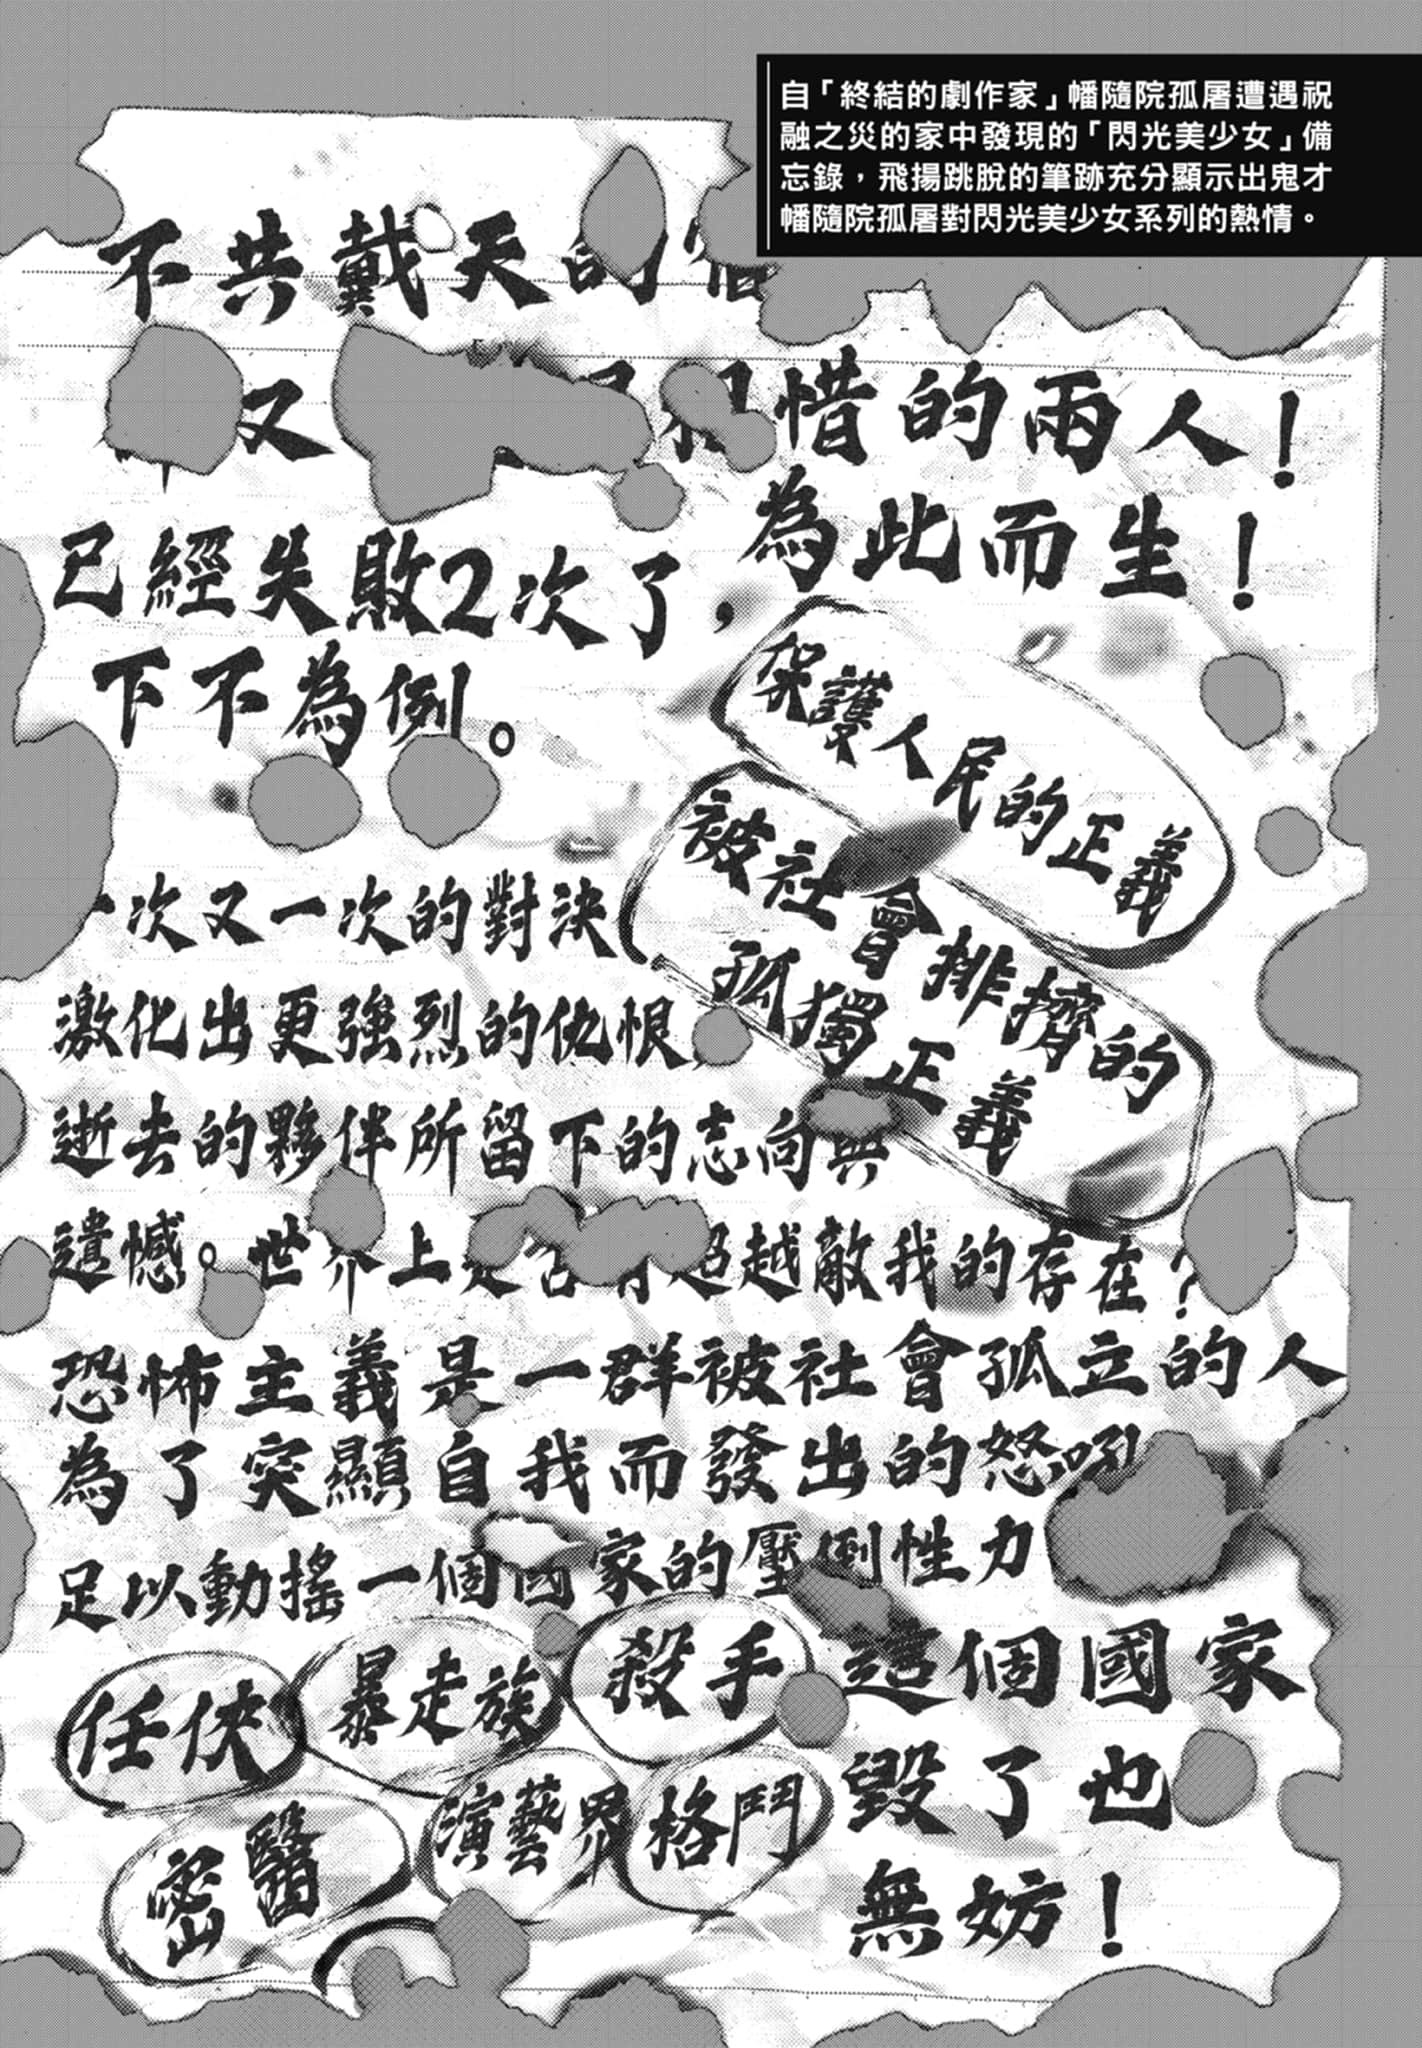 自「終結的劇作家」幡隨院孤屠遭遇祝
融之災的家中發現的「閃光美少女」備
忘錄，飛揚跳脫的筆跡充分顯示出鬼才
幡隨院孤屠對閃光美少女系列的熱情。
不共戴天的
又 惜的兩人！
為此而生！
已經失敗2次了，
下不為例。
保護人民的正義
被社會排擠的
孤獨正義
一次又一次的對決
激化出更強烈的仇恨
逝去的夥伴所留下的志向與
遺憾。世界上是否有超越敵我的存在？
恐怖主義是一群被社會孤立的人
為了突顯自我而發出的怒吼
足以動搖一個國家的壓倒性力
任俠
暴走族
殺手
這個國家
毀了也
無妨！
密醫
演藝界
格鬥